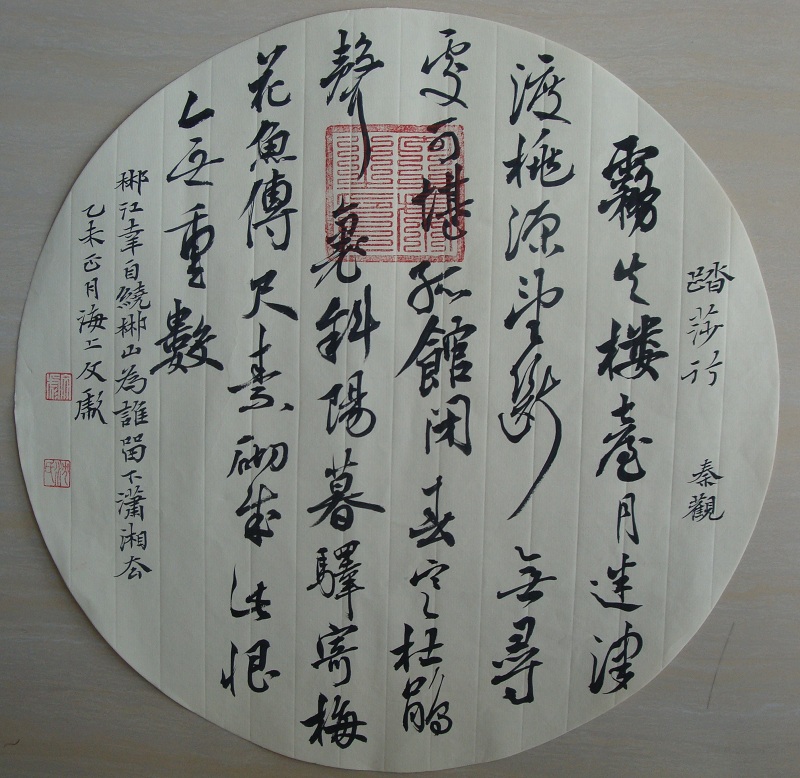 踏莎行 秦觀
霧失楼臺月迷津
渡桃源望斷無尋
處可堪孤館閉春寒杜鵑
聲裏斜陽暮驛寄梅
花魚傳尺素砌成此恨
無重數
郴江幸自繞郴山為誰留下瀟湘去
乙未正月海上